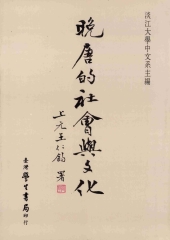 淡江大學中文系主編
晚唐的社會與文化
上元王仁鈞署
臺灣學生書局印行